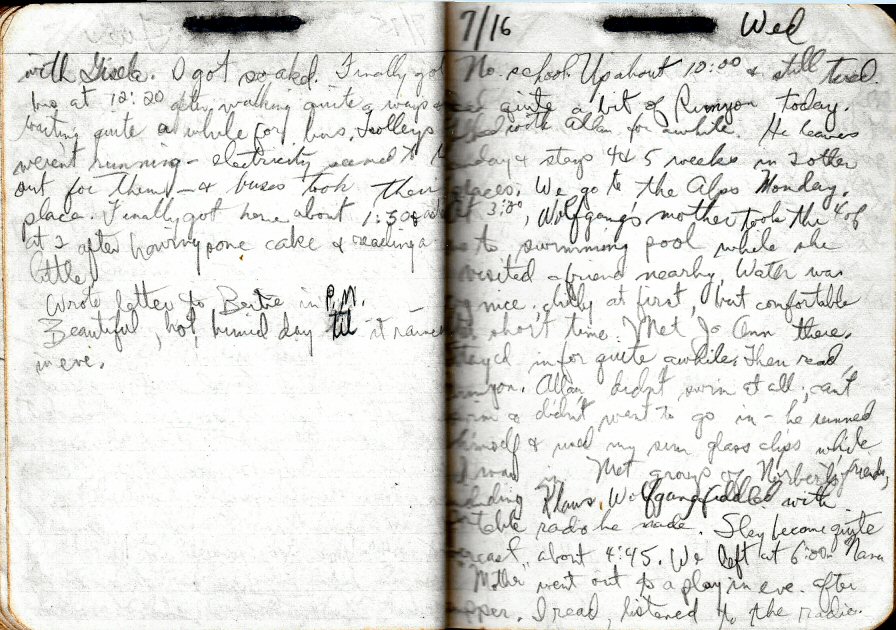 with Gisela. I got soaked. Finally got
bus at 12:20 after walking quite a ways &
waiting quite a while for bus. Trolleys
weren't running - electricity seemed to
out for them - & buses took their
place. Finally got home about 1:30 &
at 2 after having one cake & reading a
little.
Wrote letter to in P.M.
Beautiful, hot, humid day til it rained
in eve.
7/16 Wed
No school. Up about 10:00 & still tired.
quite a bit of Runyon today.
with Allan for awhile. He leaves
& stays 4 & 5 weeks in 2 other
places. We go to the Alps Monday.
At 3:00, Wolfgang's mother took the 4 of
us to swimming pool while she
visited a friend nearby. Water was
nice, chilly at first, but comfortable
in short time. Met Jo Ann there.
Stayed in for quite awhile. Then read
Runyon. Allan didn't swim at all; can't
swim & didn't want to go in - he sunned
himself & used my sun glass clips while
I was in. Met group of Norbert's friends,
including Klaus. Wolfgang fiddled with
portable radio he made. Sky became quite
overcast about 4:45. We left at 6:00.
Mother went out to a play in eve. after
supper. I read, listened to the radio.